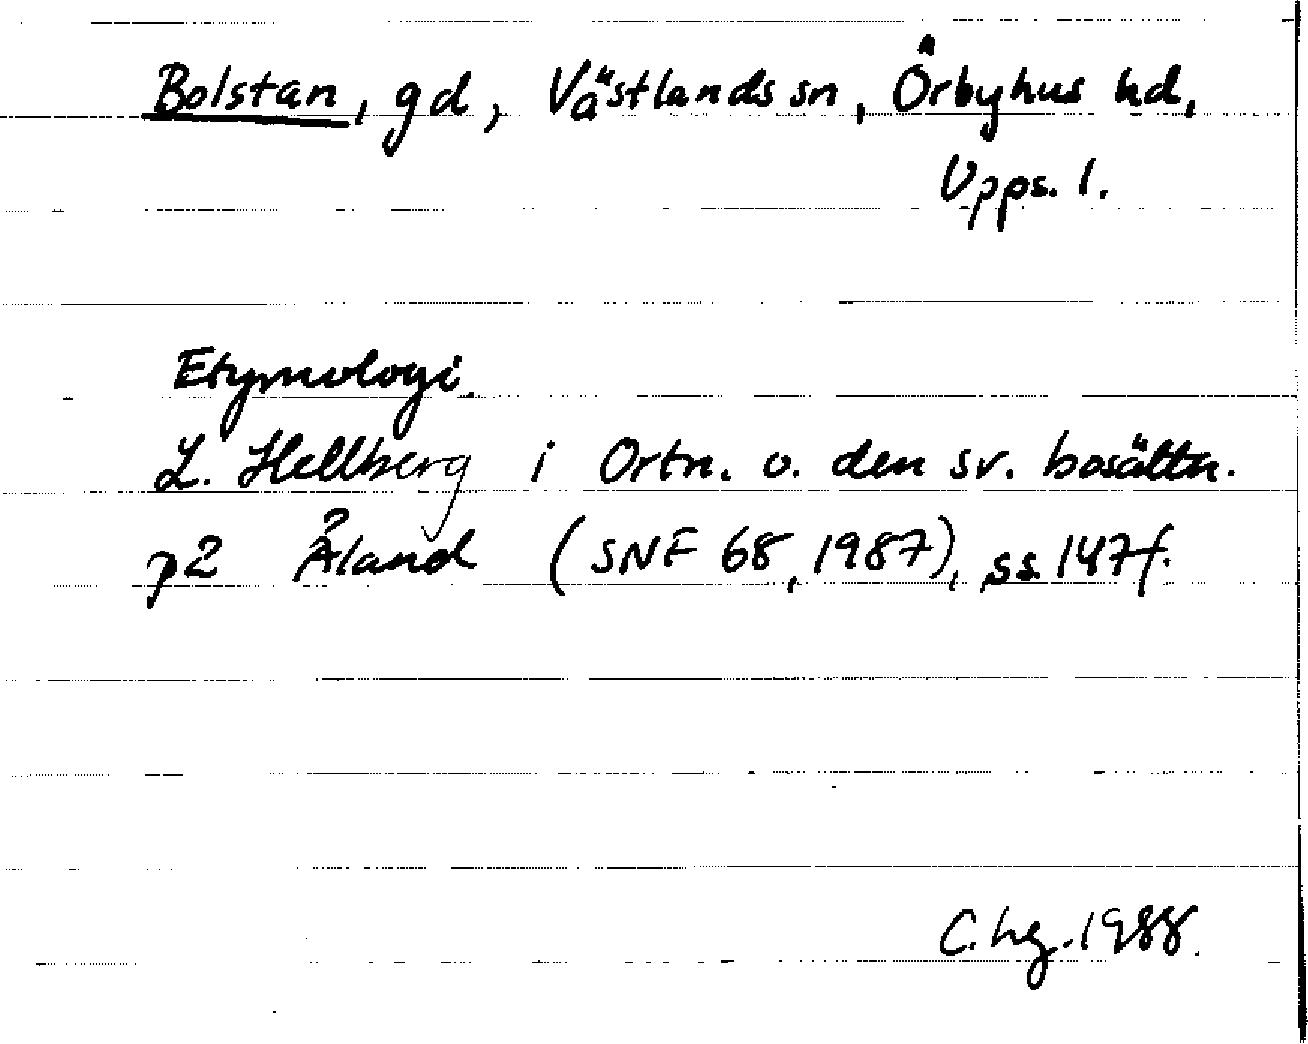 Bolstan, gd, Västlands sn, Örbyhus hd,
Upps. l.
Etymologi.
L. Hellberg i Ortn. o. den sv. bosättn.
på Åland (SNF 68, 1987), ss. 147f.
C. hg. 1988.